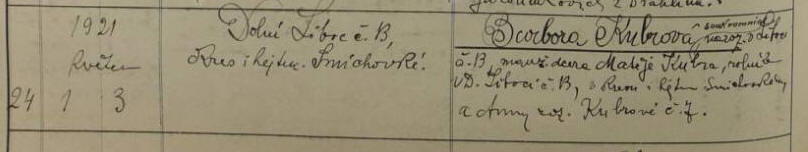 1921
Květen
24 1 3
Dolní Liboc č. 13,
okres i hejtm. Smíchovské.
Barbora Kubrová, soukromnice
naroz. v Liboci
č. 13, manž. dcera Matěje Kubra, rolníka
v D. Liboci č. 13, okresu i hejtm. Smíchovském
a Anny roz. Kubrové č. 7.